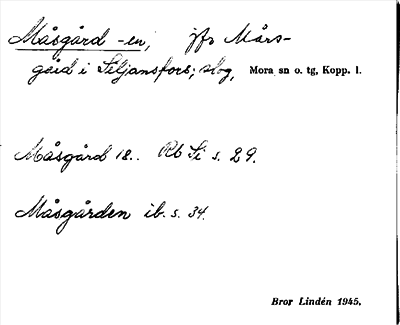 Måsgård -en, jfr Mårs-
gård i Siljansfors; skog, Mora sn o. tg, Kopp. l.
Måsgård 18.. Rb Si s. 29.
Måsgården ib. s. 34.
Bror Lindén 1945.